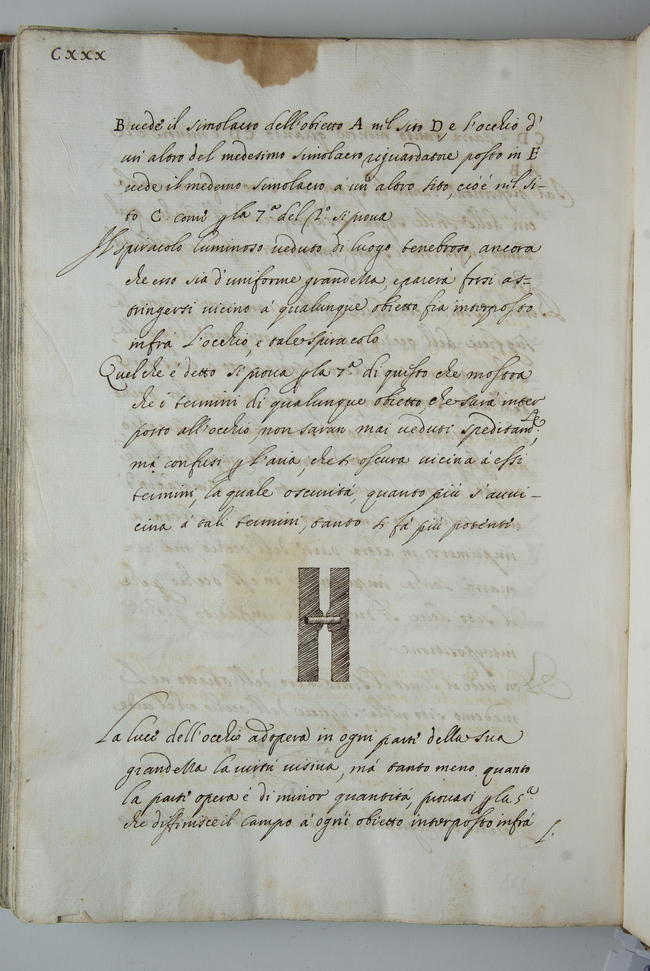 CXXX
B uede il simolacro dell'obietto A nel sito D, e l'occhio d'
un' altro del medesimo simolacro riguardatore posto in E
uede il medemo simolacro à un' altro sito, cioè nel si-
to C come p la 7.ª del si proua
Il spiracolo luminoso ueduto di luogo tenebroso, ancora
che esso sia d'uniforme grandezza, e parerà forsi as-
tringersi uicino à qualunque obietto fia interposto
infrà l'occhio, e tale spiracolo
Quel che è detto si proua p la 7.ª di questo che mostra
che i termini di qualunque obietto, che sarà inter
posto all'occhio non saran mai ueduti speditam.te,
mà confusi p l'aria, che si oscura uicina à essi
termini, la quale oscurità, quanto più s'auui-
cina à tali termini, tanto si fà più potente
La luce dell'occhio adopera in ogni parte della sua
grandezza la uirtù uisiua, mà tanto meno quanto
la parte opera è di minor quantità, prouasi p la 5.ª
che diffinisce il campo à ogni obietto interposto infrà
l'